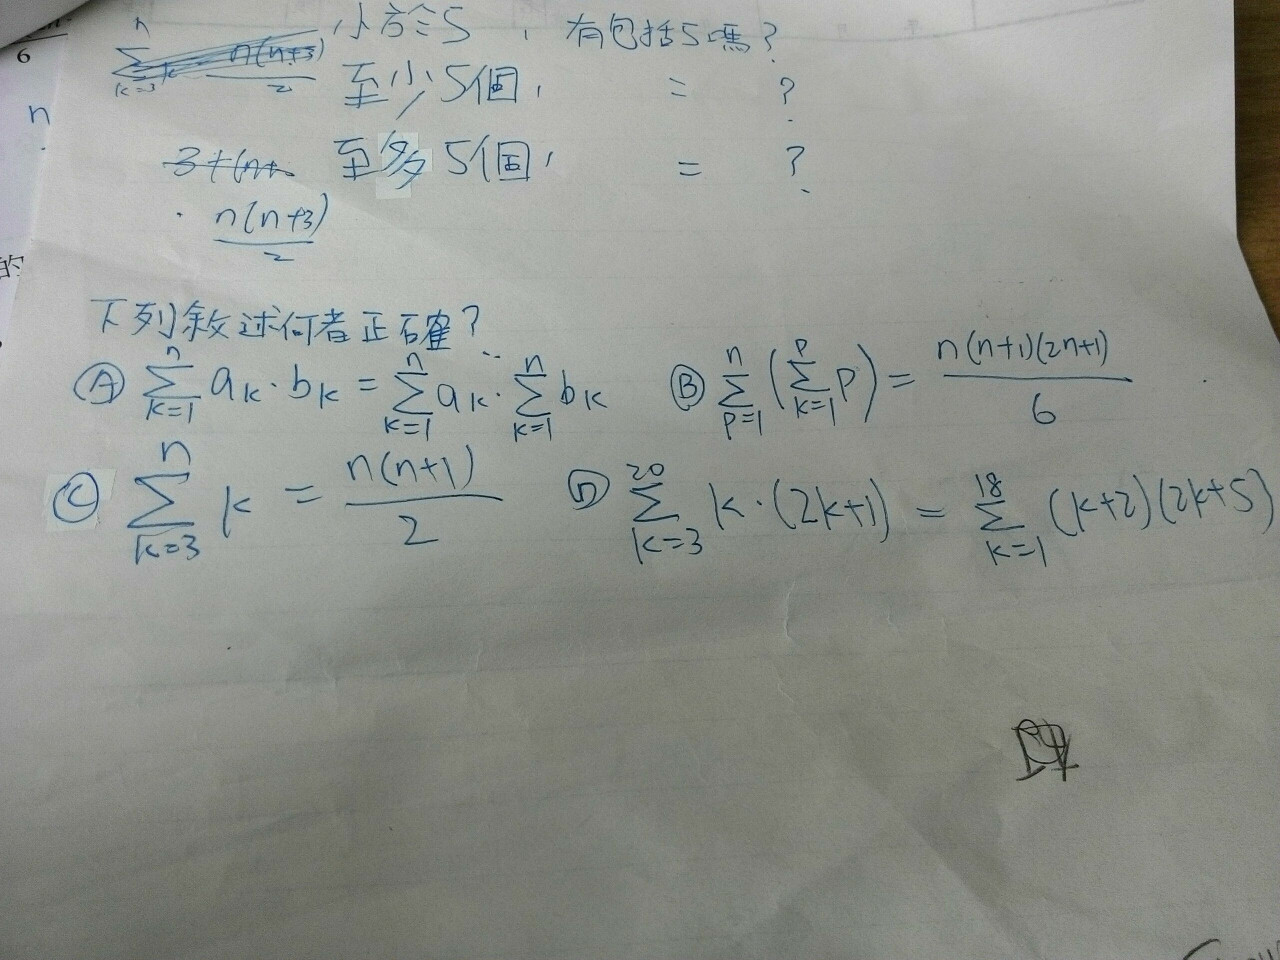 6
n
的
n
∑ k n(n+3)
k=3 2
小於等於5，有包括5嗎？
至少5個， = ？
3+(n+
至多5個， = ？
n(n+3)
2
下列敘述何者正確？
Ⓐ ∑_{k=1}^{n} aₖ·bₖ = ∑_{k=1}^{n} aₖ · ∑_{k=1}^{n} bₖ Ⓑ ∑_{p=1}^{n} (∑_{k=1}^{p} p) = n(n+1)(2n+1)/6
Ⓒ ∑_{k=3}^{n} k = n(n+1)/2 Ⓓ ∑_{k=3}^{20} k·(2k+1) = ∑_{k=1}^{18} (k+2)(2k+5)